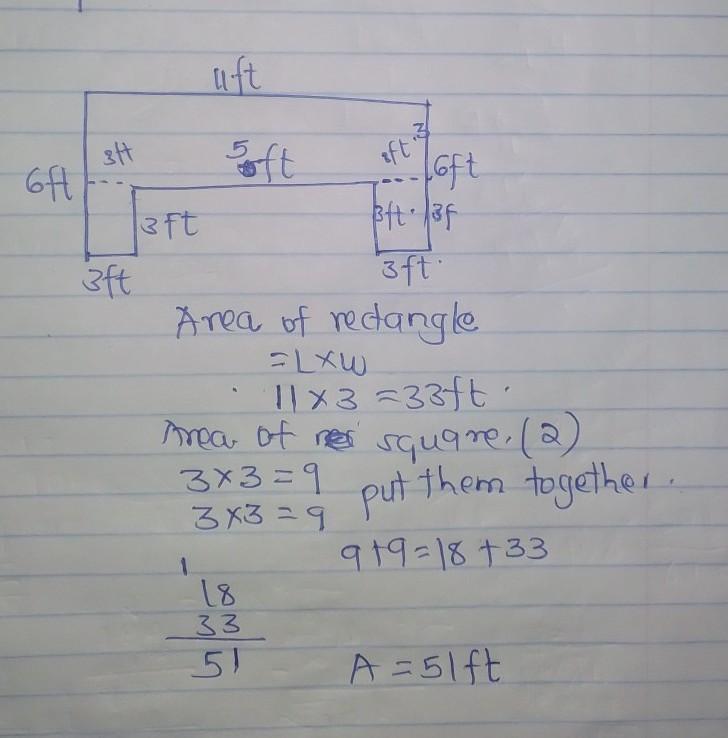 11ft
3ft 5ft 3ft 3
6ft 6ft
3ft 3ft 3f
3ft 3ft
Area of rectangle
=L×W
11×3=33ft
Area of square.(2)
3×3=9 put them together.
3×3=9
9+9=18+33
1
18
33
51 A=51ft